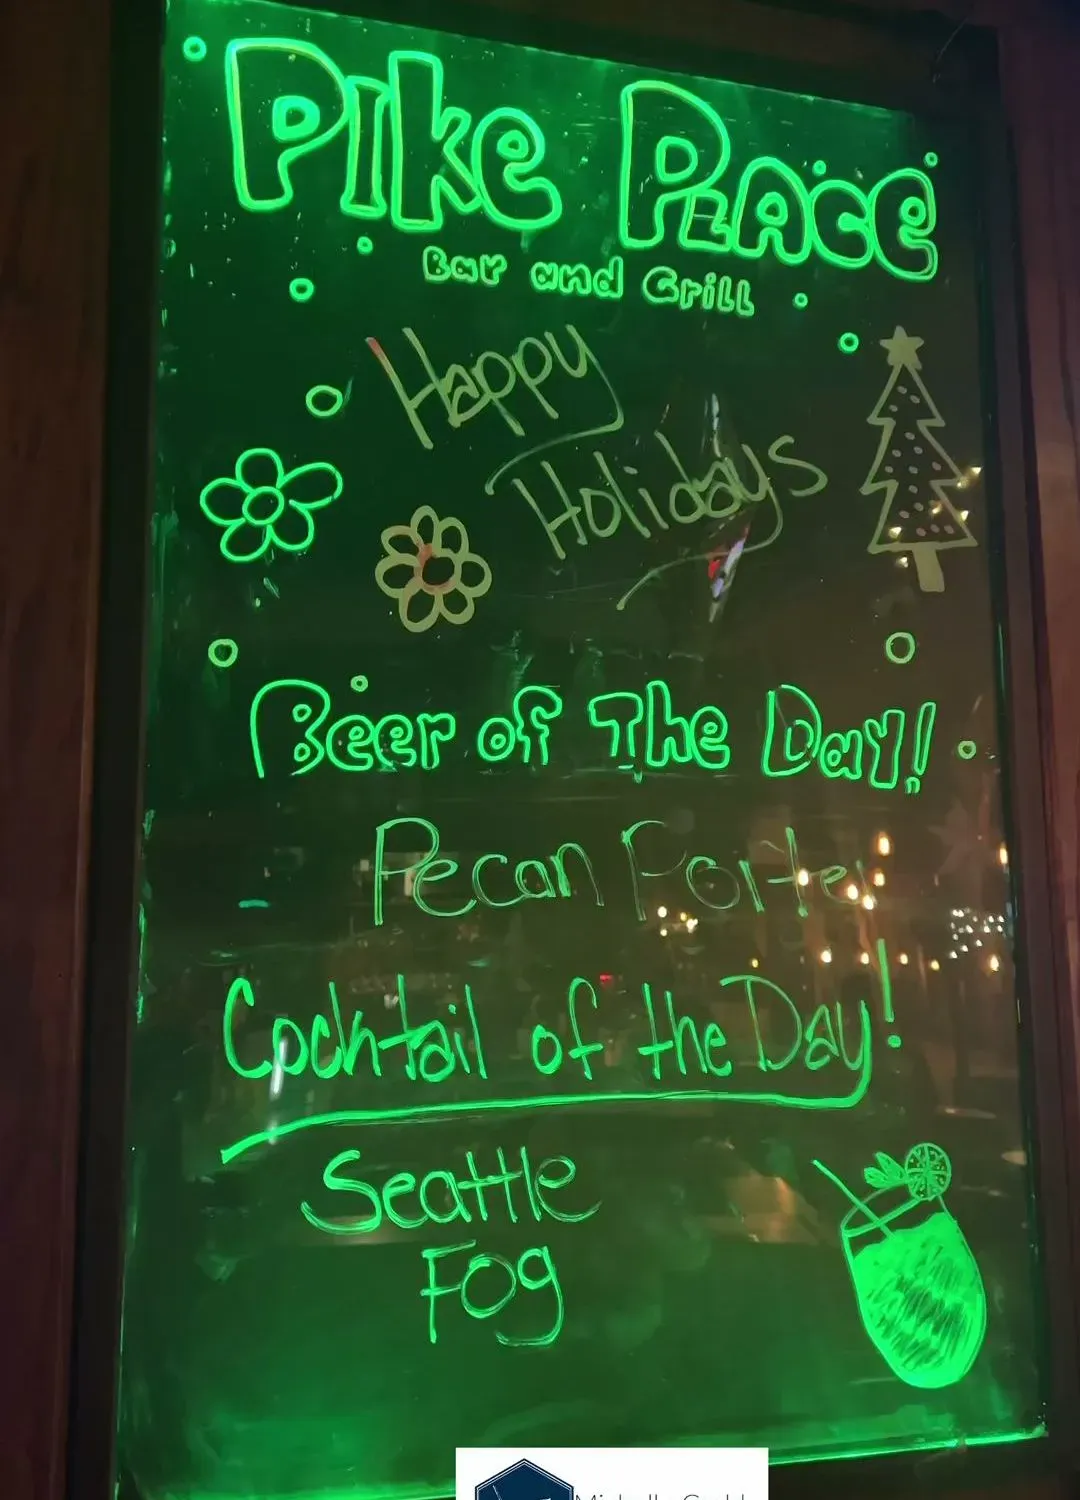 Pike Place
Bar and Grill
Happy
Holidays
Beer of The Day!
Pecan Porter
Cocktail of the Day!
Seattle
Fog